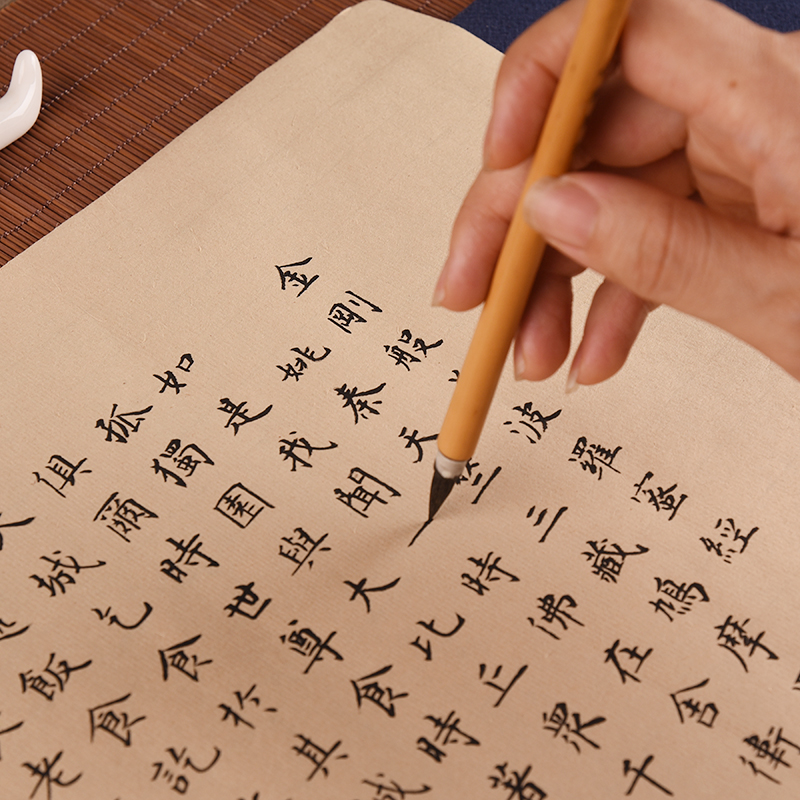 金剛般波羅蜜經
姚秦天竺三藏鳩摩
如是我聞一時佛在舍衛
孤獨園與大比丘眾千
俱爾時世尊食時著
大城乞食於其城
飯食訖
老